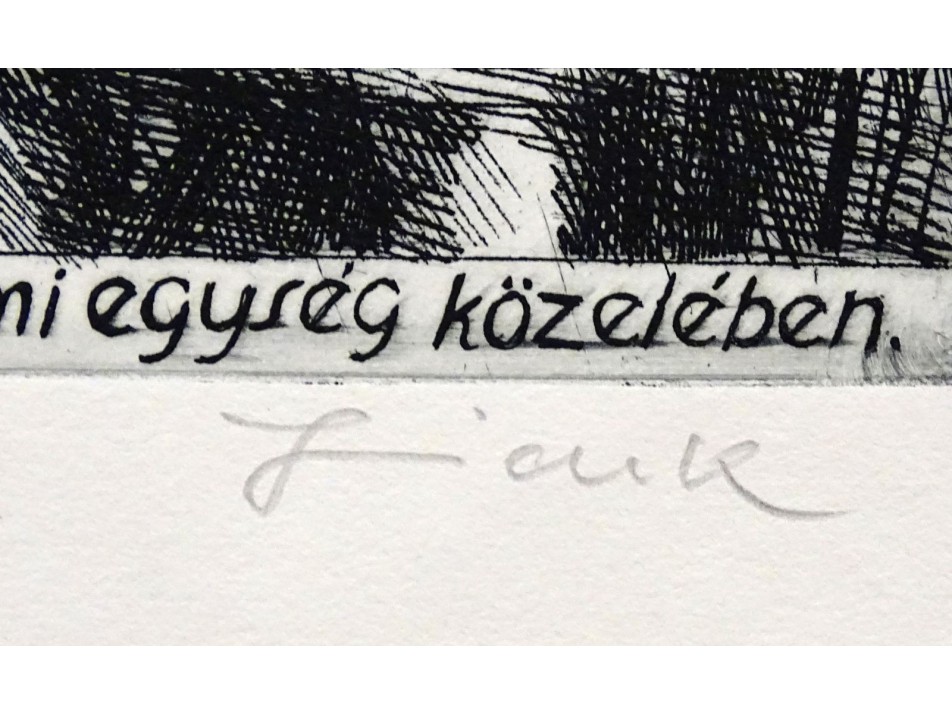 mi egység közelében.